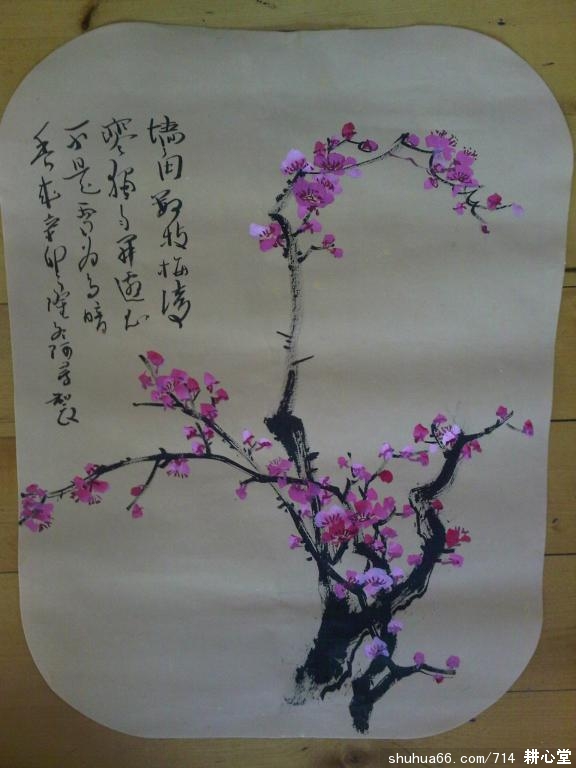 墙角数枝梅凌
寒独自开遥知
不是雪为有暗
香来辛卯隆冬
shuhua66.com/714 耕心堂